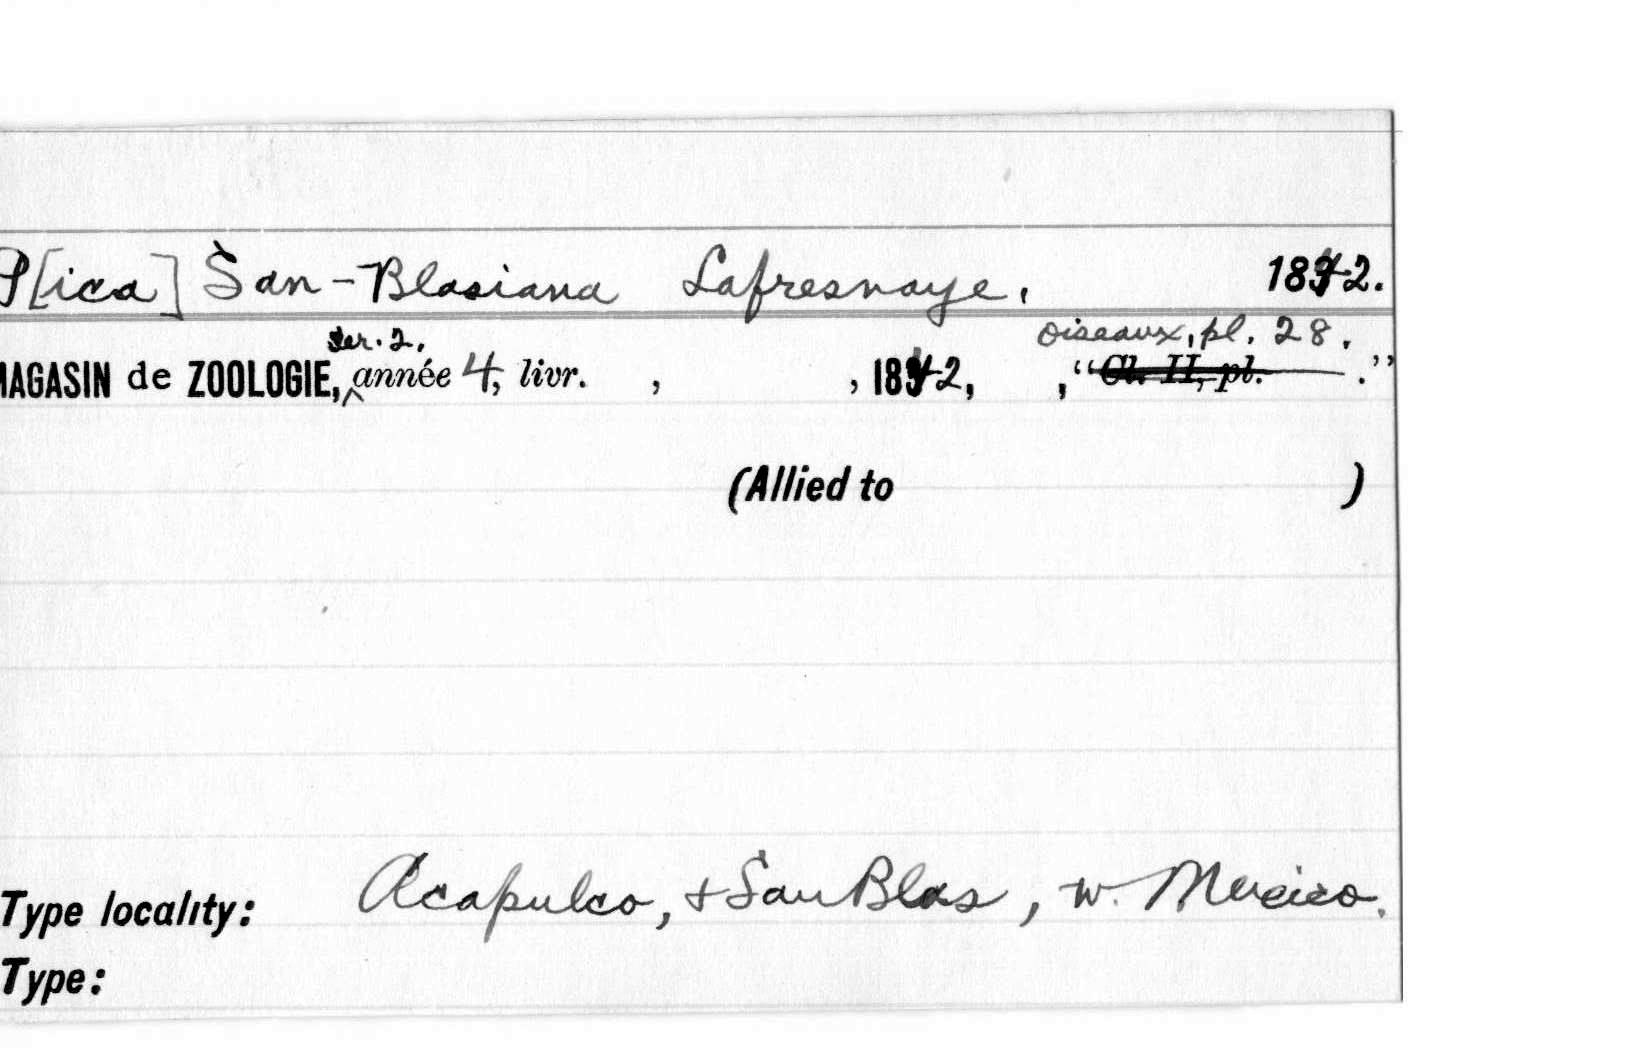 P[ica] San-Blasiana Lafresnaye. 1842.
ser. 2. oiseaux, pl. 28.
MAGASIN de ZOOLOGIE, ^ année 4, livr. , , 1842, , "Cl. II, pl. ."
(Allied to )
Type locality: Acapulco, + San Blas, w. Mexico.
Type: